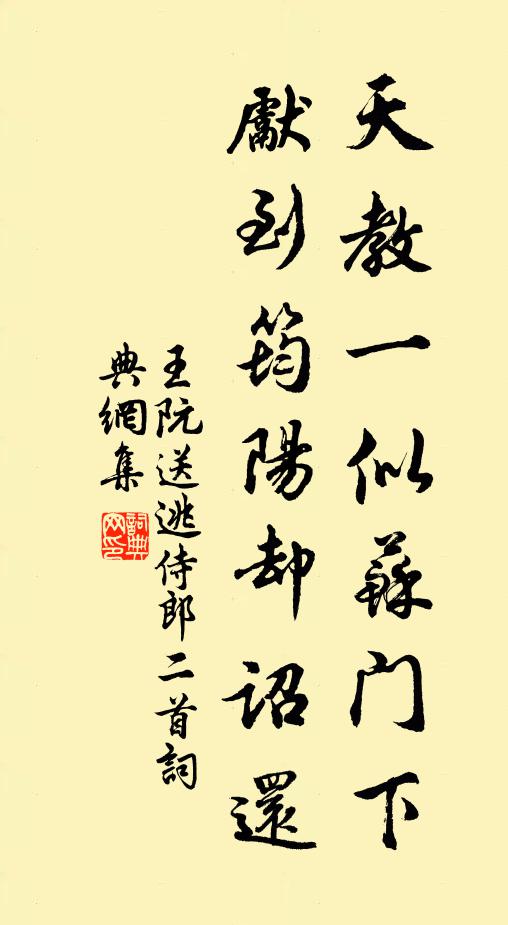 天教一似蘇门下
獻到筠陽却詔還
王阮送逃侍郎二首詞
典網集
詞典网印